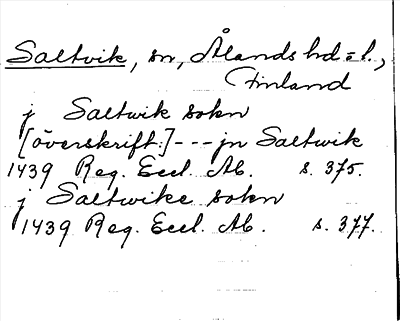 Saltvik, sn, Ålands hd=l.,
Finland
j Saltwik sokn
[överskrift:]---jn Saltwik
1439 Reg. Eccl. Ab. s. 375.
j Saltwike sokn
1439 Reg. Eccl. Ab. s. 377.